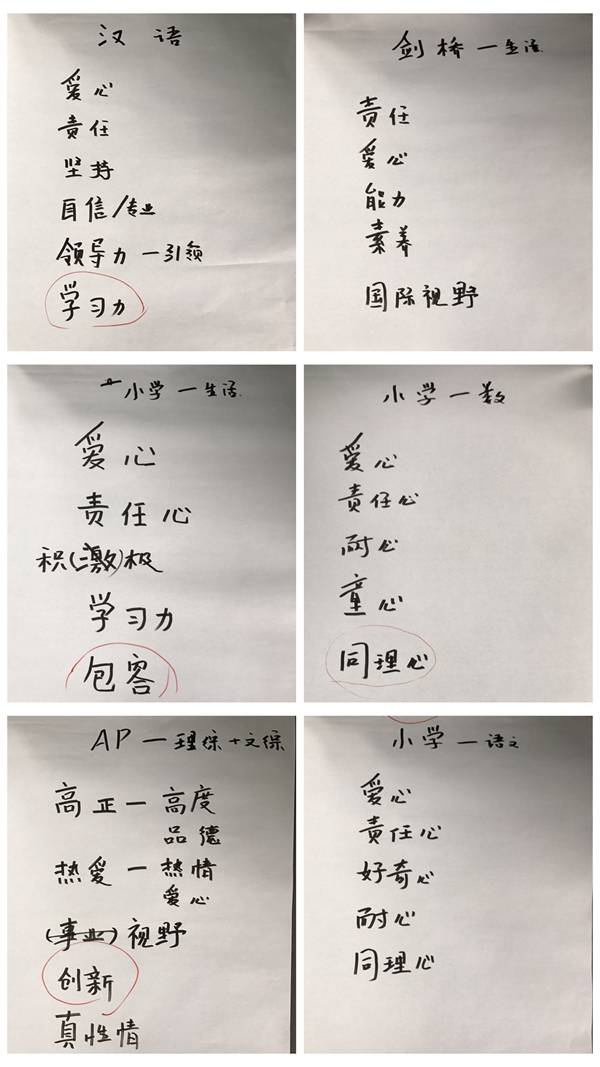 汉语
爱心
责任
坚持
自信/专业
领导力一引领
学习力
剑桥一生活
责任
爱心
能力
素养
国际视野
小学一生活
爱心
责任心
积(激)极
学习力
包容
小学一数
爱心
责任心
耐心
童心
同理心
AP一理综+文综
高正一高度
品德
热爱一热情
爱心
(事业)视野
创新
真性情
小学一语文
爱心
责任心
好奇心
耐心
同理心